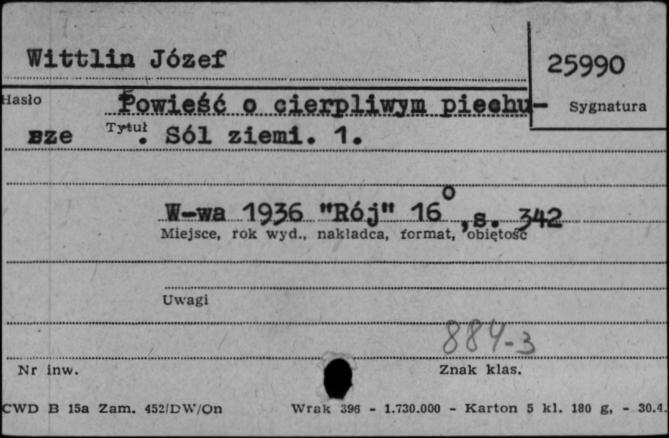 Wittlin Józef
25990
Hasło
Powieść o cierpliwym piechu-
Sygnatura
rze
Tytuł
. Sól ziemi. 1.
W-wa 1936 "Rój" 16⁰, s. 342
Miejsce, rok wyd., nakładca, format, objętość
Uwagi
884-3
Nr inw.
Znak klas.
CWD B 15a Zam. 452/DW/On
Wrak 396 - 1.730.000 - Karton 5 kl. 180 g, - 30.4.